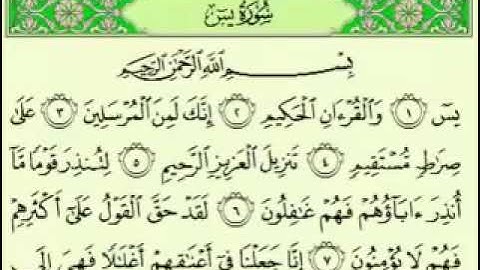 سُورَةُ يسٓ
بِسْمِ اللَّهِ الرَّحْمَٰنِ الرَّحِيمِ
يسٓ ۝١ وَالْقُرْءَانِ الْحَكِيمِ ۝٢ إِنَّكَ لَمِنَ الْمُرْسَلِينَ ۝٣ عَلَىٰ
صِرَاطٍ مُّسْتَقِيمٍ ۝٤ تَنزِيلَ الْعَزِيزِ الرَّحِيمِ ۝٥ لِتُنذِرَ قَوْمًا مَّآ
أُنذِرَ ءَابَآؤُهُمْ فَهُمْ غَٰفِلُونَ ۝٦ لَقَدْ حَقَّ الْقَوْلُ عَلَىٰٓ أَكْثَرِهِمْ
فَهُمْ لَا يُؤْمِنُونَ ۝٧ إِنَّا جَعَلْنَا فِىٓ أَعْنَٰقِهِمْ أَغْلَٰلًا فَهِىَ إِلَى